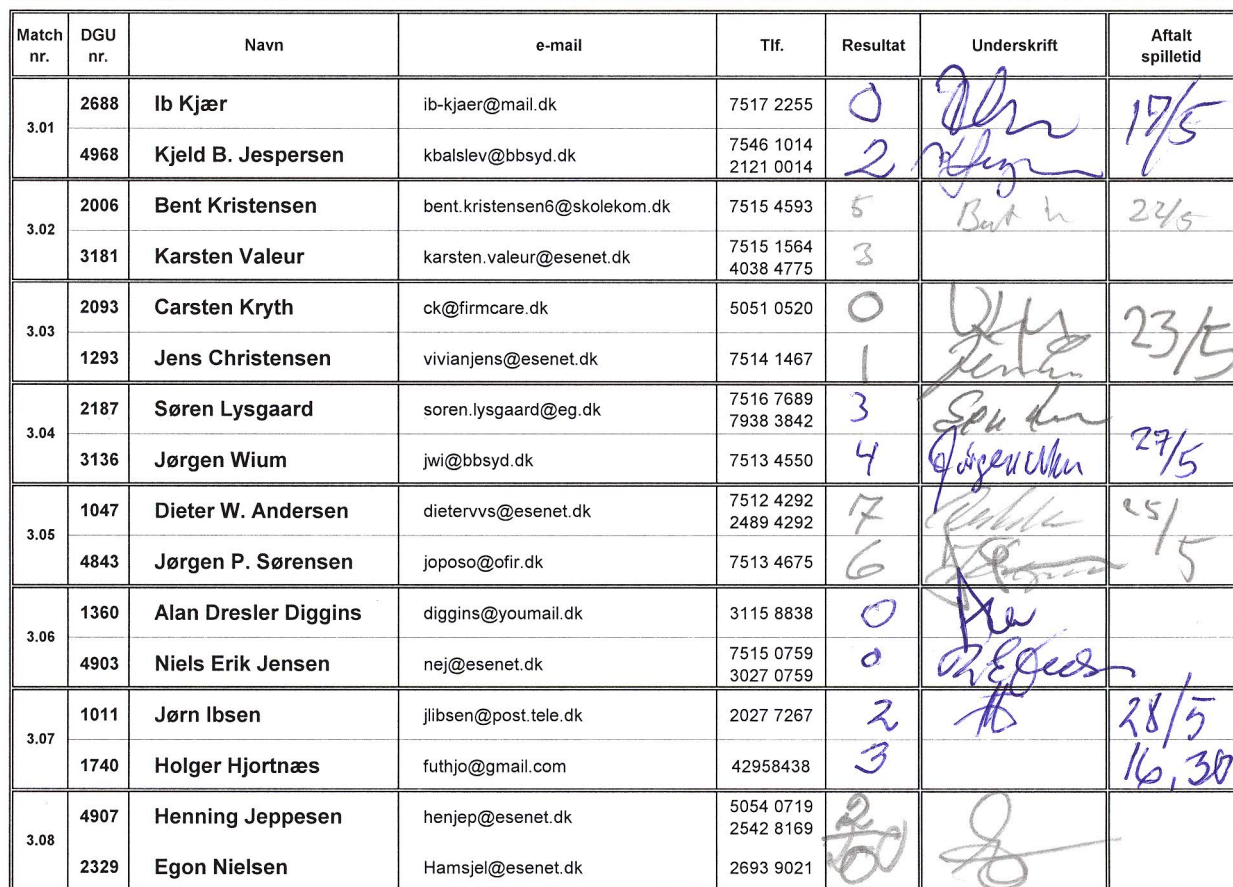 Match nr. DGU nr. Navn e-mail Tlf. Resultat Underskrift Aftalt spilletid
3.01
2688 Ib Kjær ib-kjaer@mail.dk 7517 2255 0 17/5
4968 Kjeld B. Jespersen kbalslev@bbsyd.dk 7546 1014 2121 0014 2
3.02
2006 Bent Kristensen bent.kristensen6@skolekom.dk 7515 4593 5 22/5
3181 Karsten Valeur karsten.valeur@esenet.dk 7515 1564 4038 4775 3
3.03
2093 Carsten Kryth ck@firmcare.dk 5051 0520 0 23/5
1293 Jens Christensen vivianjens@esenet.dk 7514 1467 1
3.04
2187 Søren Lysgaard soren.lysgaard@eg.dk 7516 7689 7938 3842 3
3136 Jørgen Wium jwi@bbsyd.dk 7513 4550 4 27/5
3.05
1047 Dieter W. Andersen dietervvs@esenet.dk 7512 4292 2489 4292 7 25/5
4843 Jørgen P. Sørensen joposo@ofir.dk 7513 4675 6
3.06
1360 Alan Dresler Diggins diggins@youmail.dk 3115 8838 0
4903 Niels Erik Jensen nej@esenet.dk 7515 0759 3027 0759 0
3.07
1011 Jørn Ibsen jlibsen@post.tele.dk 2027 7267 2 28/5
1740 Holger Hjortnæs futhjo@gmail.com 42958438 3 16,30
3.08
4907 Henning Jeppesen henjep@esenet.dk 5054 0719 2542 8169 2
2329 Egon Nielsen Hamsjel@esenet.dk 2693 9021 0